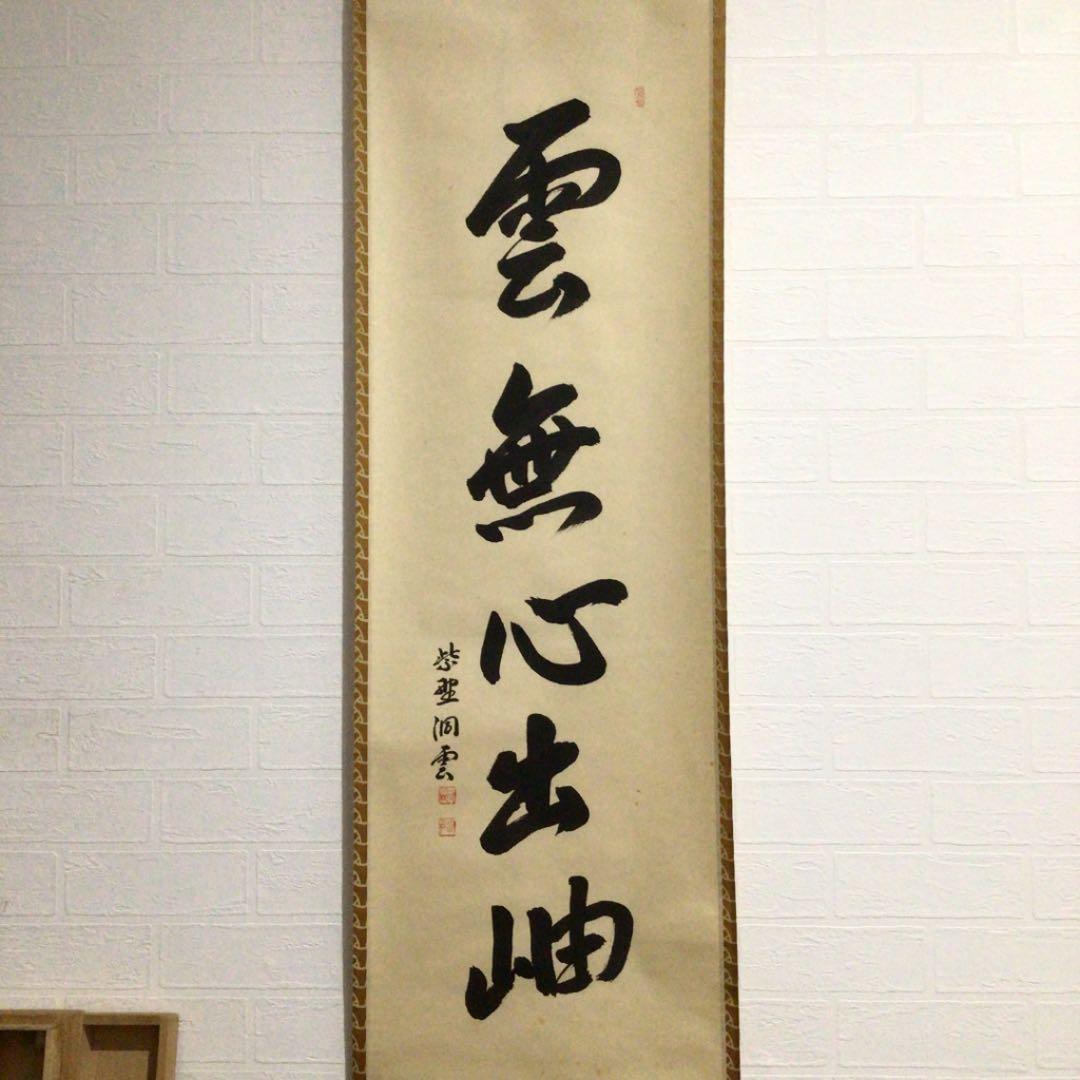 雲無心出岫
紫野洞雲